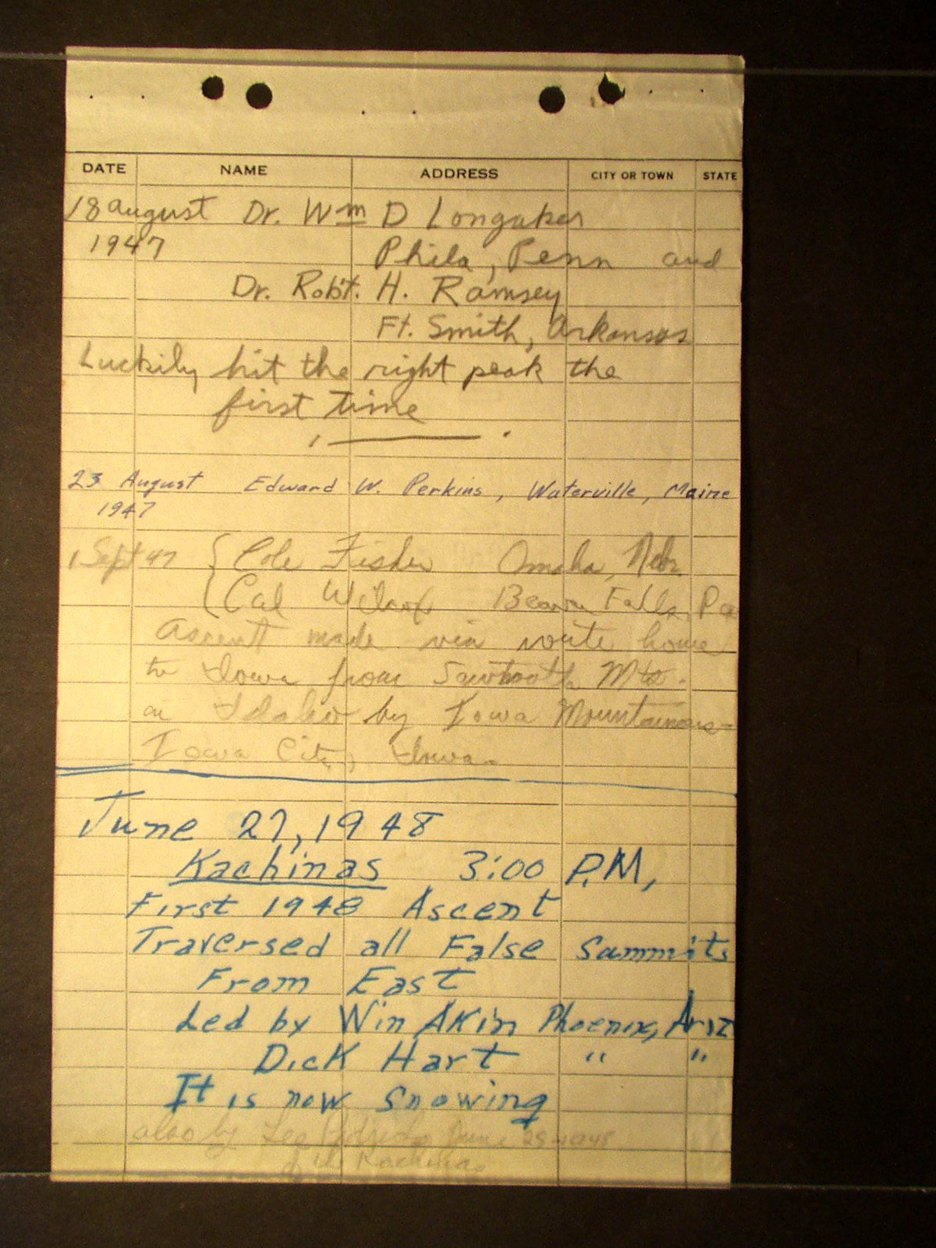 DATE NAME ADDRESS CITY OR TOWN STATE
18 August Dr. Wm D Longaker
1947 Phila, Penn and
Dr. Robt. H. Ramsey
Ft. Smith, Arkansas
Luckily hit the right peak the
first time
23 August Edward W. Perkins, Waterville, Maine
1947
1 Sept 47 { Cole Fisher Omaha, Nebr.
Cal Wilcox Beaver Falls, Pa
Ascent made via route home
to Iowa from Sawtooth Mts.
in Idaho by Iowa Mountaineers
Iowa City, Iowa.
June 27, 1948
Kachinas 3:00 P.M,
First 1948 Ascent
Traversed all False Summits
From East
Led by Win Akin Phoenix, Ariz
Dick Hart " "
It is now Snowing
also by June 1948
Kachinas